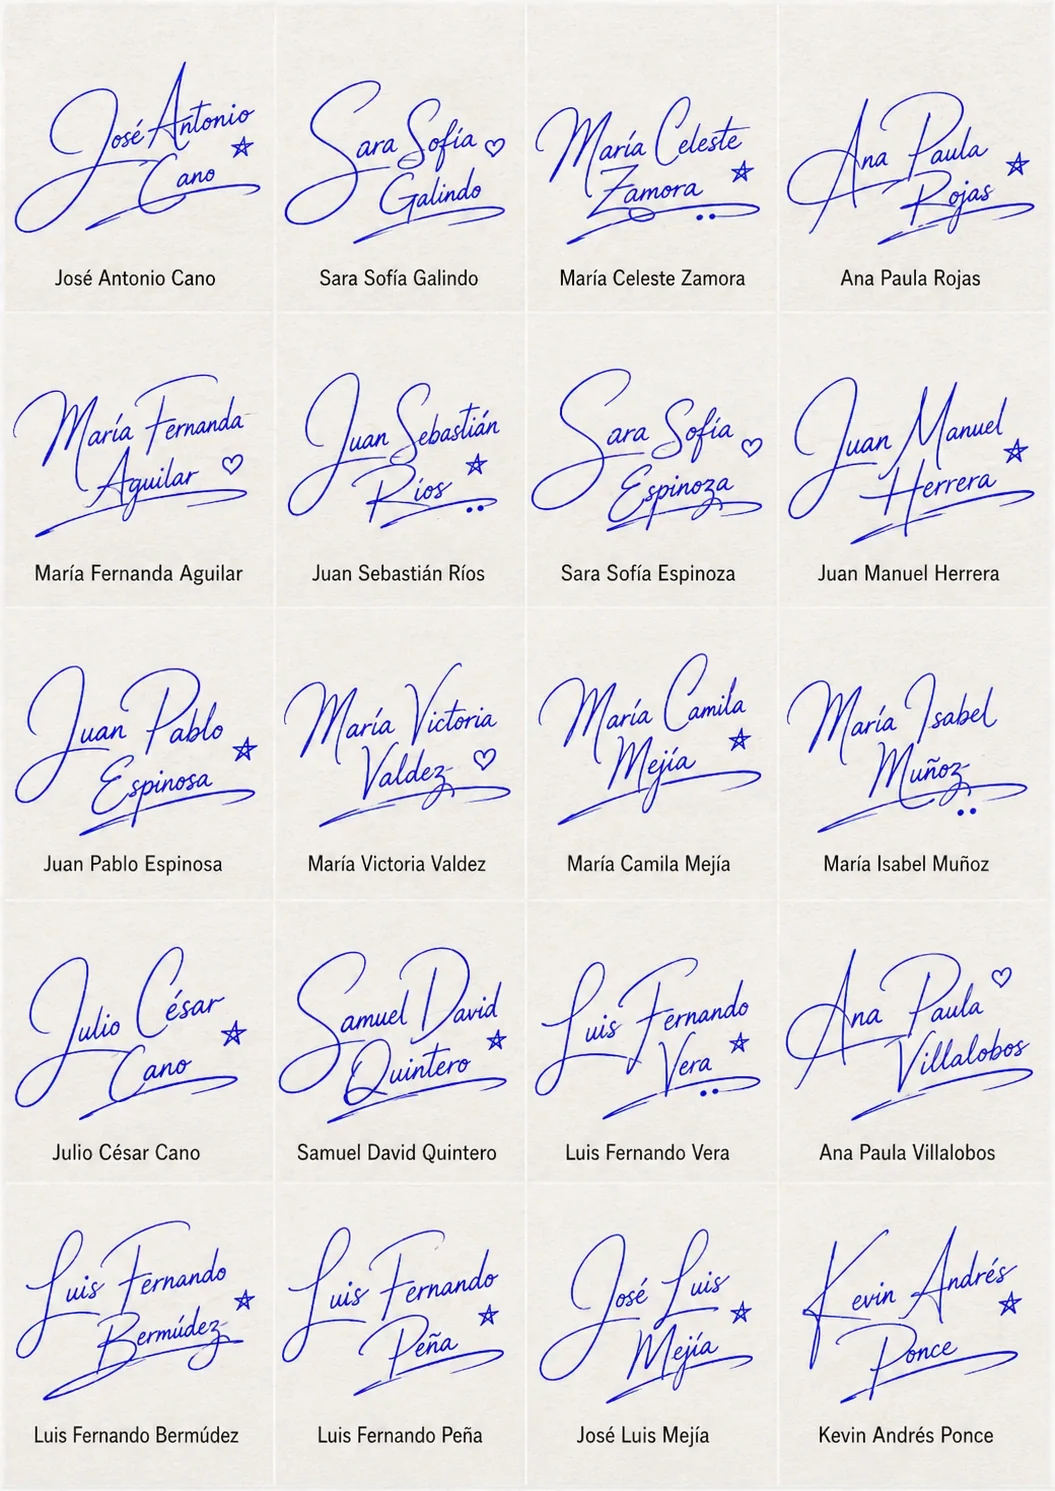 José Antonio
Cano
José Antonio Cano
Sara Sofía
Galindo
Sara Sofía Galindo
María Celeste
Zamora
María Celeste Zamora
Ana Paula
Rojas
Ana Paula Rojas
María Fernanda
Aguilar
María Fernanda Aguilar
Juan Sebastián
Ríos
Juan Sebastián Ríos
Sara Sofía
Espinoza
Sara Sofía Espinoza
Juan Manuel
Herrera
Juan Manuel Herrera
Juan Pablo
Espinosa
Juan Pablo Espinosa
María Victoria
Valdez
María Victoria Valdez
María Camila
Mejía
María Camila Mejía
María Isabel
Muñoz
María Isabel Muñoz
Julio César
Cano
Julio César Cano
Samuel David
Quintero
Samuel David Quintero
Luis Fernando
Vera
Luis Fernando Vera
Ana Paula
Villalobos
Ana Paula Villalobos
Luis Fernando
Bermúdez
Luis Fernando Bermúdez
Luis Fernando
Peña
Luis Fernando Peña
José Luis
Mejía
José Luis Mejía
Kevin Andrés
Ponce
Kevin Andrés Ponce